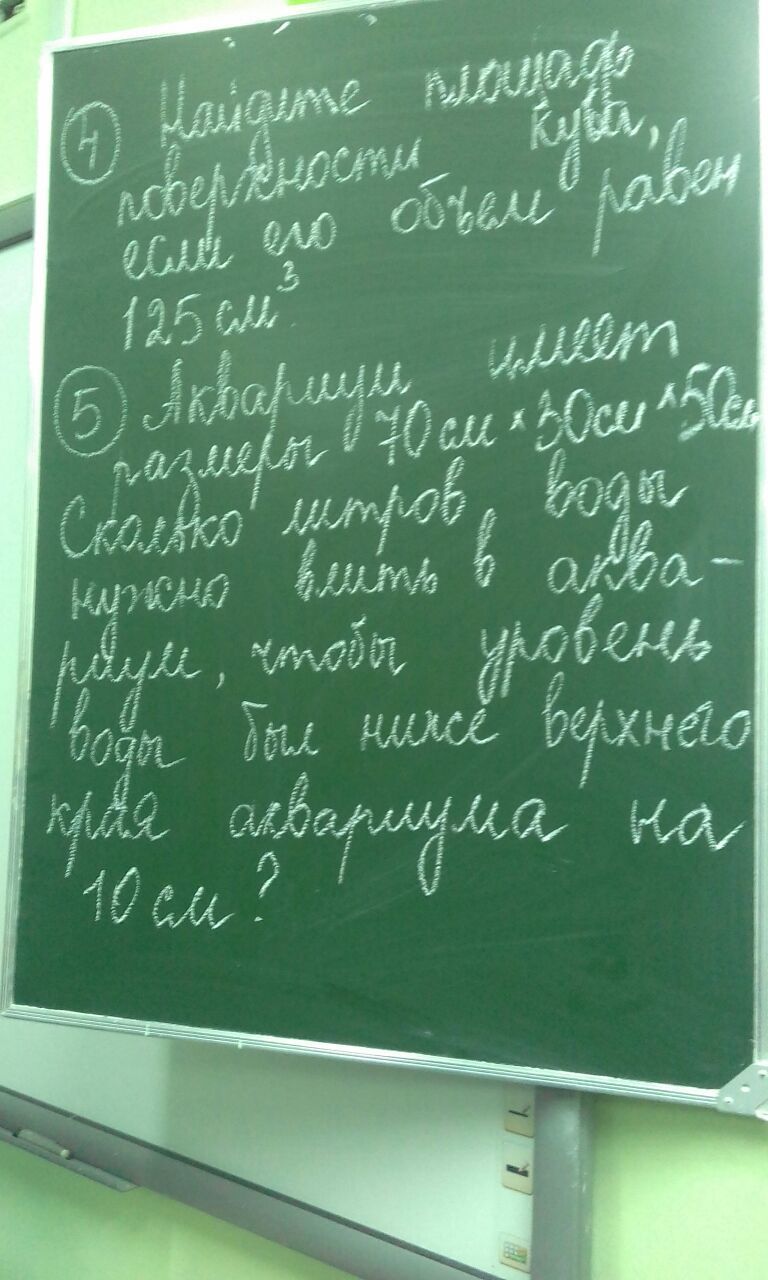 4 Найдите площадь
поверхности куба,
если его объем равен
125 см³.
5 Аквариум имеет
размеры 70см × 30см × 50см
Сколько литров воды
нужно влить в аква-
риум, чтобы уровень
воды был ниже верхнего
края аквариума на
10 см?